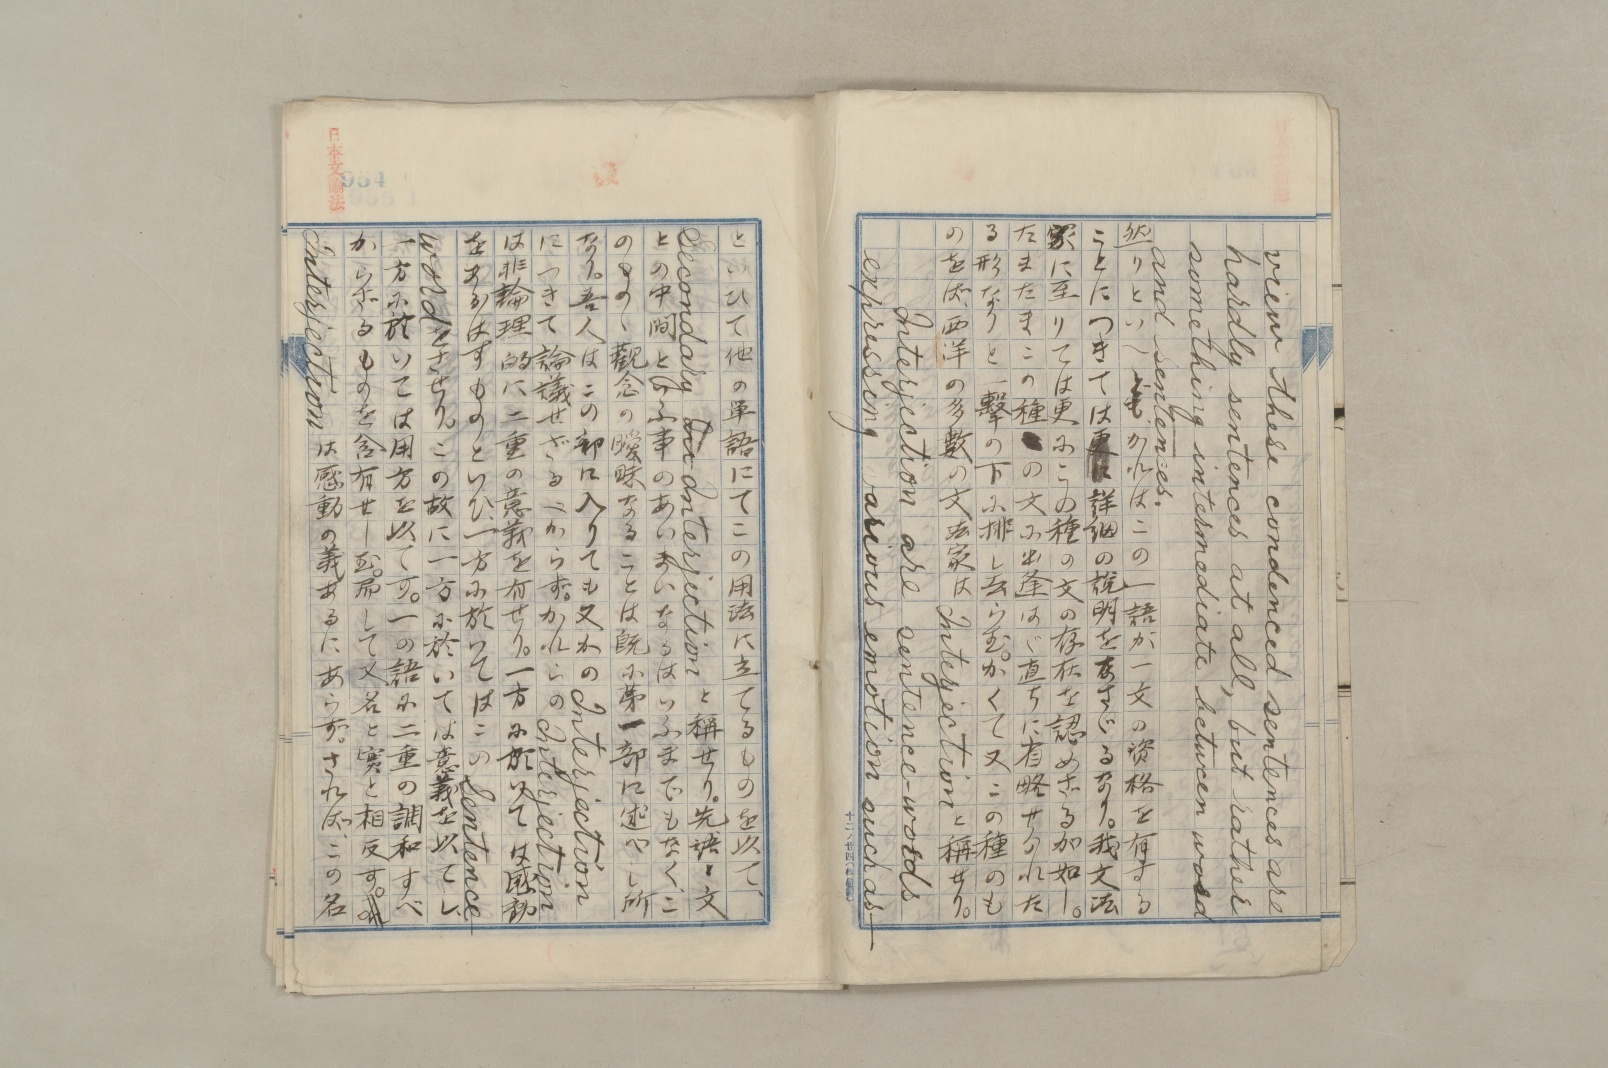 view these condenced sentences are
hardly sentences at all, but rather
something intermediate between word
and sentences.
然りといへどもかれはこの一語が一文の資格を有する
ことにつきては詳細の説明をなさざるなり。我文法
家に至りては更にこの種の文の存在を認めざる如し。
たまたまこの種の文に出逢はば直ちに省略せられた
る形なりと一撃の下に排し去らむ。かくて又この種のも
のをば、西洋の多數の文法家は Interjection と稱せり。
Interjection are sentence-words
expressing various emotion such as
といひて他の単語にてこの用法に立てるものを以て、
Secondary Interjection と稱せり。先語と文
との中間といふ事のあいまいなるはいふまでもなく、こ
のものゝ觀念の曖昧なることは既に第一部に述べし所
なり。吾人はこの部に入りても又かの Interjection
につきて論議せざるべからず。かれらの Interjection
は非論理的に二重の意義を有せり。一方に於いては感動
をあらはすものといひ、一方に於いてはこの Sentence
word をさせり。この故に一方に於いては意義を以てし、
一方に於いては用方を以てす。一の語に二重の調和すべ
からざるものを含有せしむ。而して又名と実と相反す。
Interjection は感動の義あるにあらず。されば、この名
日本文法
954
十二ノ廿四